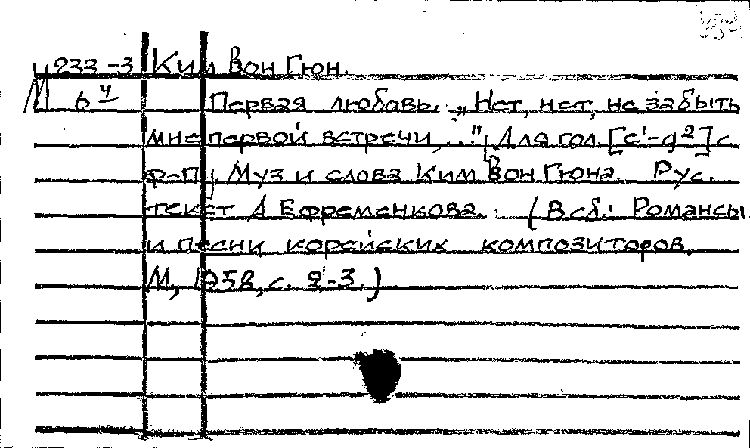 М 933-3 Ким Вон Гюн.
6 ч Первая любовь. „Нет, нет, не забыть
мне первой встречи..." Для гол. [c¹-g²] с
ф-п. Муз и слова Ким Вон Гюна. Рус.
текст А Ефременкова. (В сб.: Романсы
и песни корейских композиторов.
М, 1958, с. 2-3.)